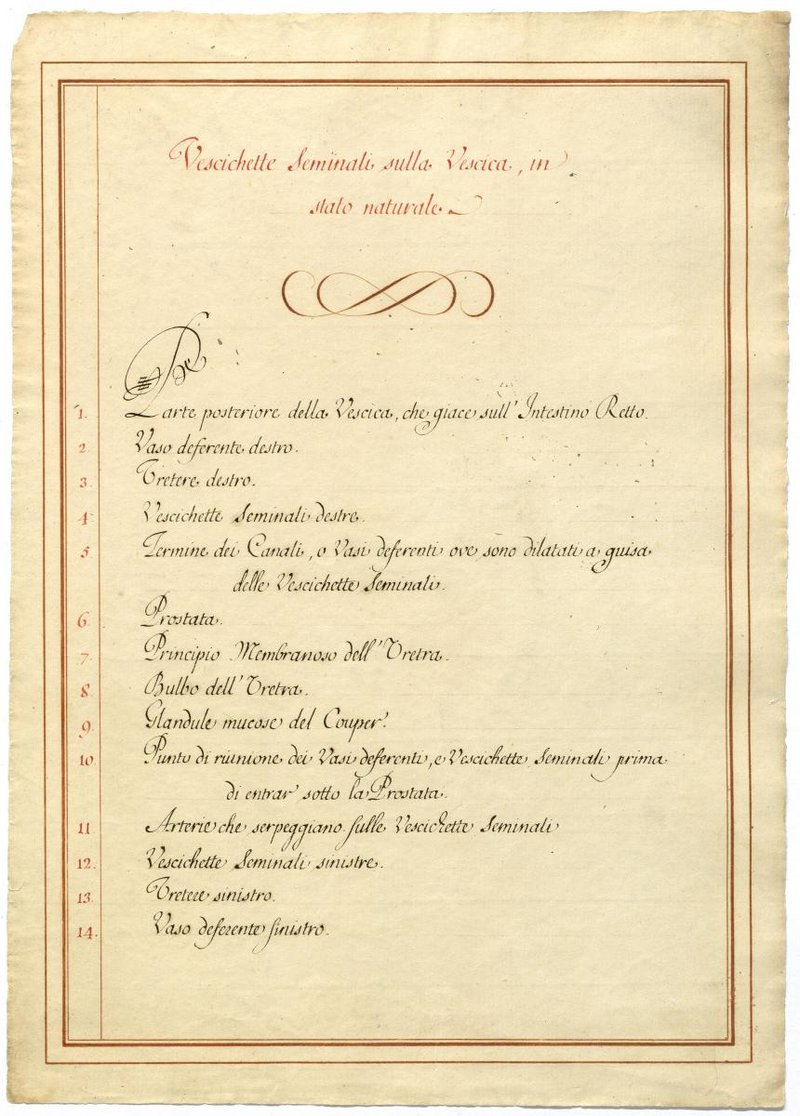 Vescichette Seminali sulla Vescica, in
stato naturale.
1. Parte posteriore della Vescica, che giace sull' Intestino Retto.
2. Vaso deferente destro.
3. Uretere destro.
4. Vescichette Seminali destre.
5. Termine dei Canali, o Vasi deferenti ove sono dilatati a guisa
delle Vescichette Seminali.
6. Prostata.
7. Principio Membranoso dell' Uretra.
8. Bulbo dell' Uretra.
9. Glandule mucose del Couper.
10. Punto di riunione dei Vasi deferenti, e Vescichette Seminali prima
di entrar sotto la Prostata.
11 Arterie che serpeggiano sulle Vescichette Seminali
12. Vescichette Seminali sinistre.
13. Uretere sinistro.
14. Vaso deferente sinistro.